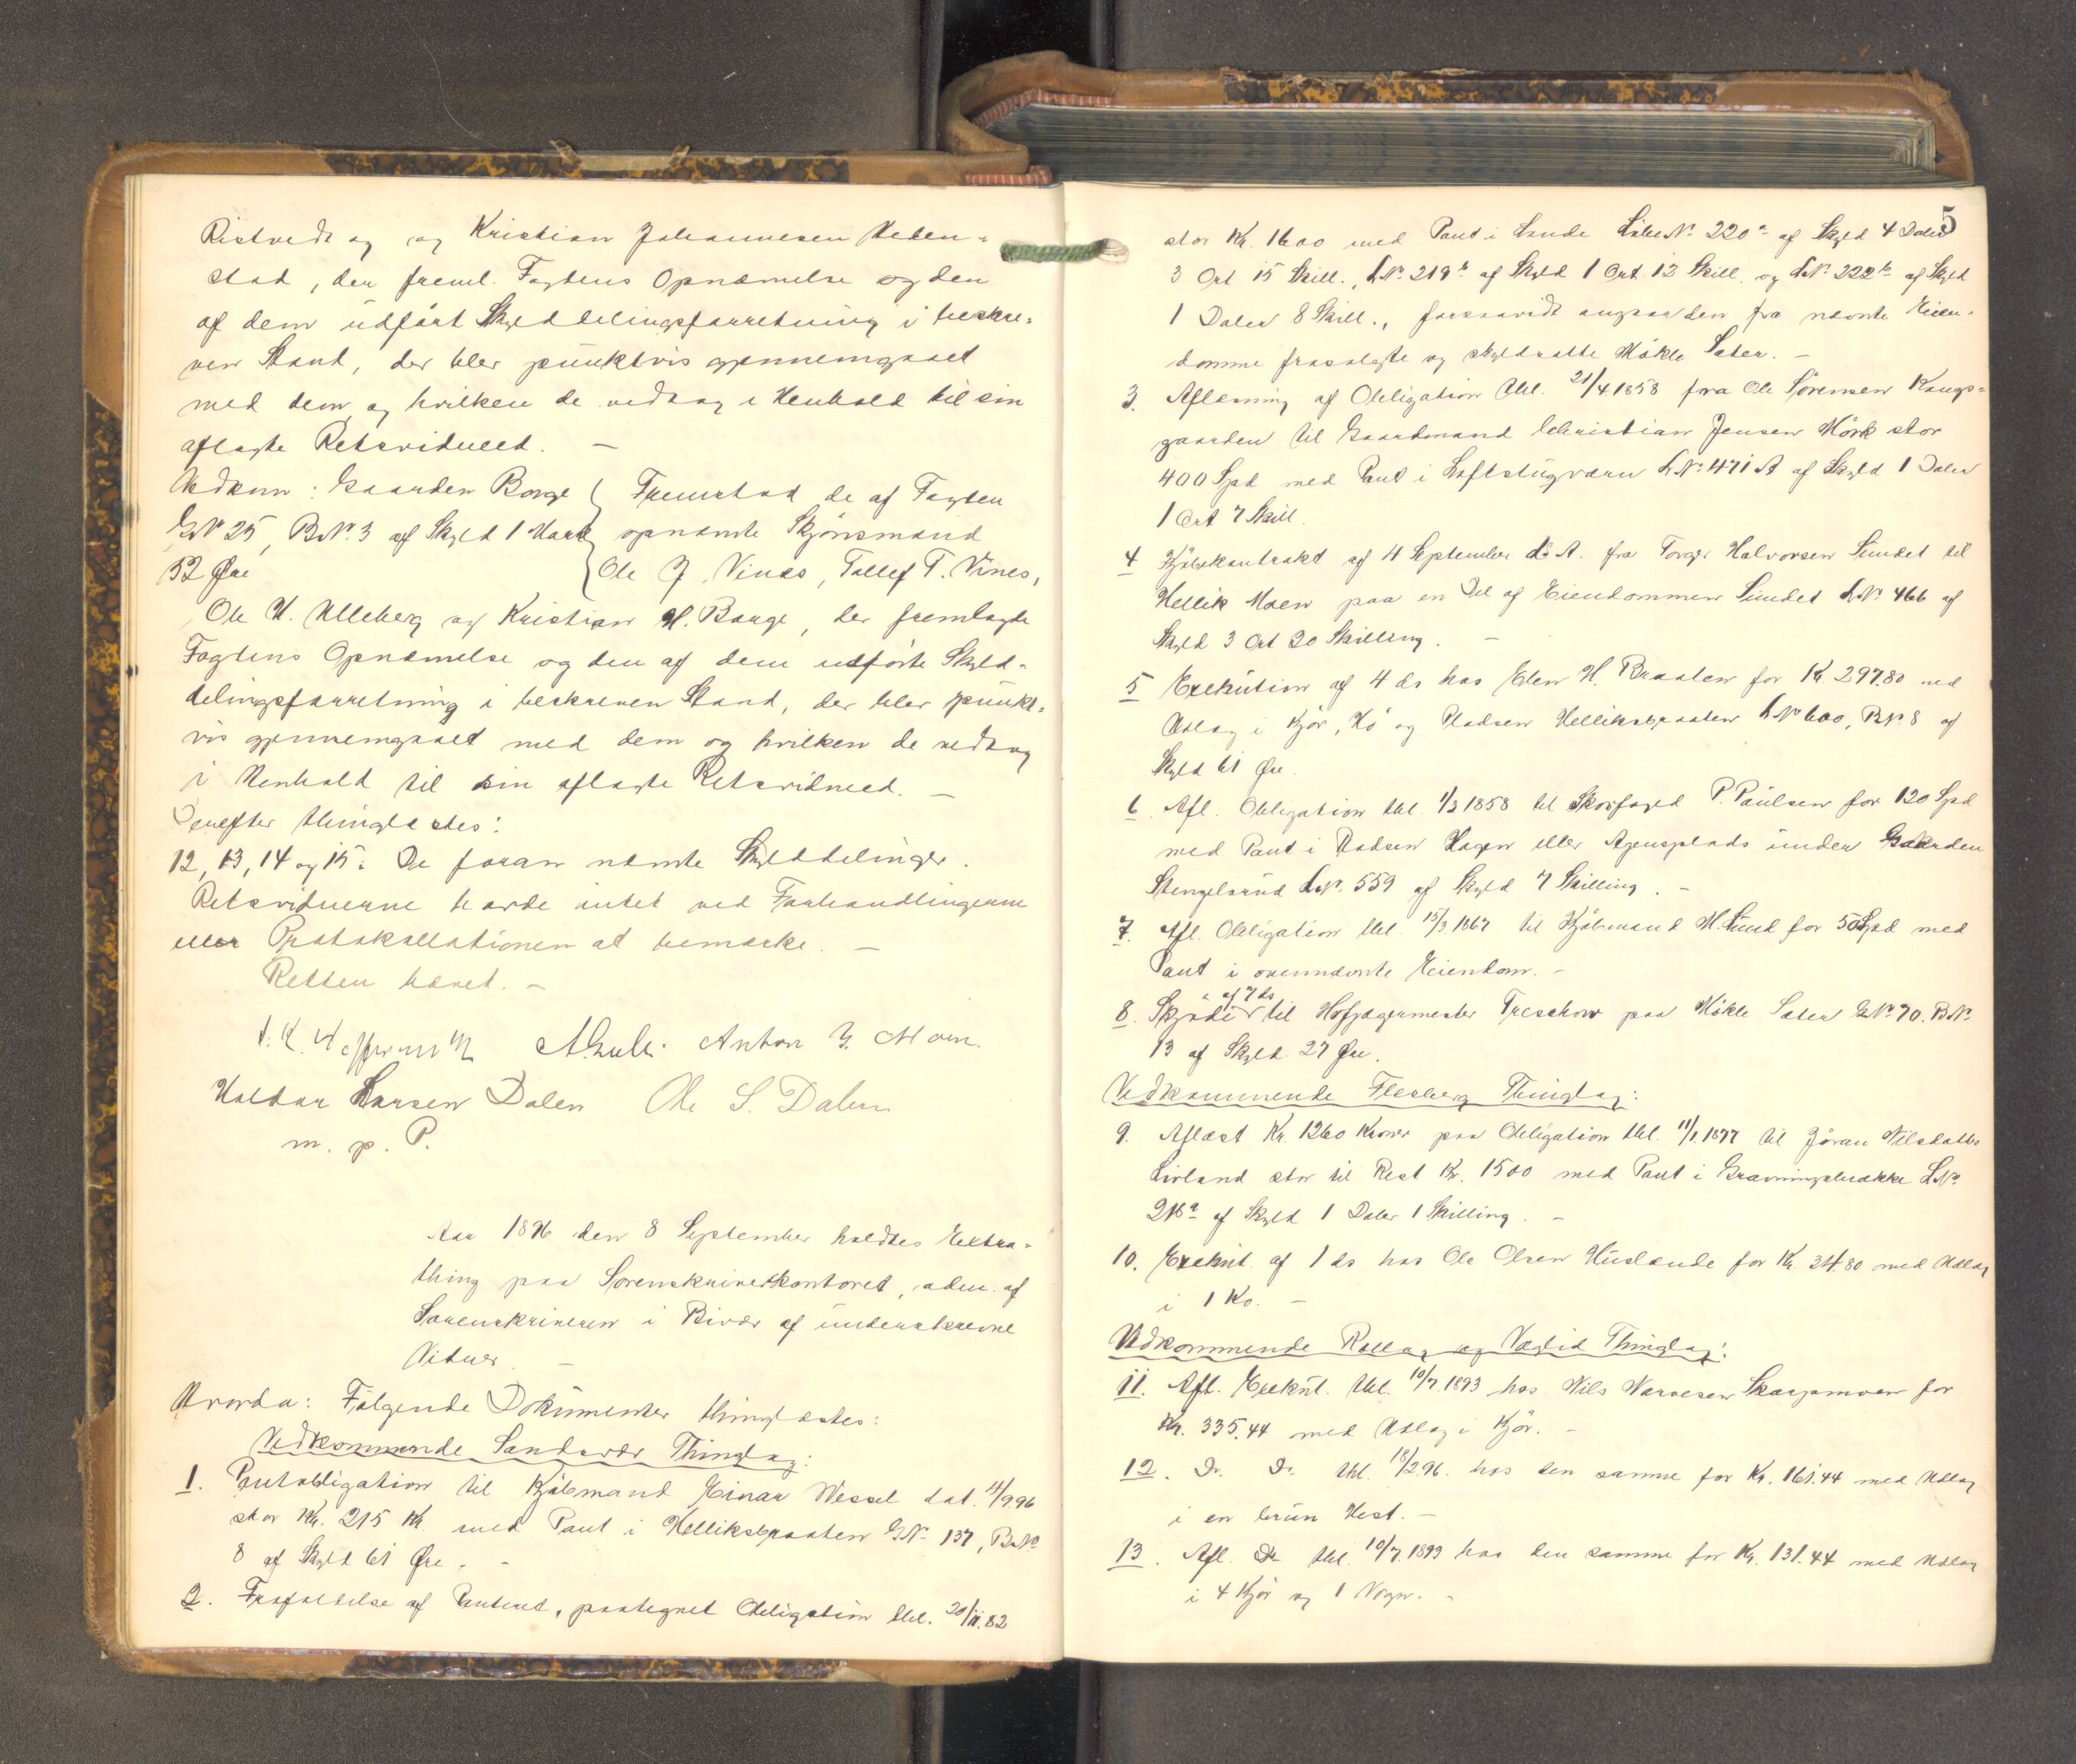 Ristvedt og og Kristian Johannesen Heden-
stad, der freml. Fogdens Opnæmelse og den
af dem udfört Skylddelingsforretning i beskre-
ven Stand, der blev punktvis gjennemgaaet
med dem og hvilken de vedtog i Henhold til sin
aflagte Retsvidneed. —
Vedkom: Gaarden Borge
GNr 25, BNr. 3 af Skyld 1 Mark
52 Øre
Fremstod de af Fogden
opnæmte Skjönsmænd
Ole J. Vinæs, Tollef T. Vines,
Ole H. Ulleberg og Kristian H. Borge, der fremlagde
Fogdens Opnæmelse og den af dem udförte Skyld-
delingsforretning i beskreven Stand, der blev punkt-
vis gjennemgaaet med dem og hvilken de vedtog
i Henhold til sin aflagte Retsvidneed. —
Derefter thinglæstes:
12, 13, 14 og 15: De foran nævnte Skylddelinger.
Retsvidnerne havde intet ved Forhandlingerne
eller Protokollationen at bemærke. —
Retten hævet. —
Anton G. Moen.
Halvor Larsen Dalen Ole S. Dalen
m. p. P.
Aar 1896 den 8 September holdtes Extra-
thing paa Sorenskriverkontoret, adm. af
Sorenskriveren i Bivær af underskrevne
Vidner. —
Hvorda: Fölgende Dokumenter thinglæstes:
Vedkommende Sandsvær Thinglag:
1. Pantobligation til Kjöbmand Einar Wessel dat. 4/9.96
stor Kr. 215 Kr. med Pant i Helliksbraaten GNr. 137, BNr.
8 af Skyld 61 Øre. -
2. Frafaldelse af Panteret, paategnet Obligation thl. 20/11.82
5
stor Kr. 1600 med Pant i Sande LöbeNr. 220a af Skyld 4 Daler
3 Ort 15 Skill., LNr. 219b af Skyld 1 Ort 12 Skill. og LNr. 222b af Skyld
1 Daler 8 Skill., forsaavidt angaar den fra nævnte Eien-
domme frasolgte og skyldsatte Mökle Sæter. —
3. Aflæsning af Obligation thl. 21/4 1858 fra Ole Sörensen Kongs-
gaarden til Gaardmand Christian Jensen Mörk stor
400 Spd med Pant i Loftstugværn LNr. 471 A af Skyld 1 Daler
1 Ort 7 Skill.
4 Kjöbekontrakt af 4 September d. A. fra Torger Halvorsen Sundet til
Hellik Moen paa en Del af Eiendommen Sundet LNr. 466 af
Skyld 3 Ort 20 Skilling. —
5 Exekution af 4 ds hos Elen H. Braaten for Kr 297.80 med
Udlæg i Kjör, Hö og Pladsen Helliksbraaten LNr 600, BNr. 8 af
Skyld 61 Øre.
6. Afl. Obligation thl. 1/3 1858 til Skovfoged P. Paulsen for 120 Spd
med Pant i Pladsen Hagen eller Agensplads under Gaarden
Stengelsrud LNr. 559 af Skyld 7 Skilling. -
7. Afl. Obligation thl. 15/3 1867 til Kjöbmand M. Lund for 50 Spd med
Pant i ovennævnte Eiendom. -
af 7 ds
8. Skjöde til Hofjægermester Treschow paa Mökle Sæter GNr. 70. BNr.
13 af Skyld 27 Øre.
Vedkommende Flesberg Thinglag:
9. Aflæst Kr. 1260 Kroner paa Obligation thl. 11/1.1877 til Jöran Nilsdatter
Livland stor til Rest Kr. 1500 med Pant i Gravningsbrække LNr.
218a af Skyld 1 Daler 1 Skilling. -
10. Exekut. af 1 ds hos Ole Olsen Huslænde for Kr. 34.80 med Udlæg
i 1 Ko. —
Vedkommende Rollag og Veglid Thinglag:
11. Afl. Exekut. thl. 10/7.1893 hos Nils Narvesen Skarpamoen for
Kr. 335.44 med Udlæg i Kjör. -
12. Do. Do. thl. 18/2.96. hos den samme for Kr. 161.44 med Udlæg
i en brun Hest. —
13. Afl. Do thl. 10/7.1893 hos den samme for Kr. 131.44 med Udlæg
i 4 Kjör og 1 Vogn. -